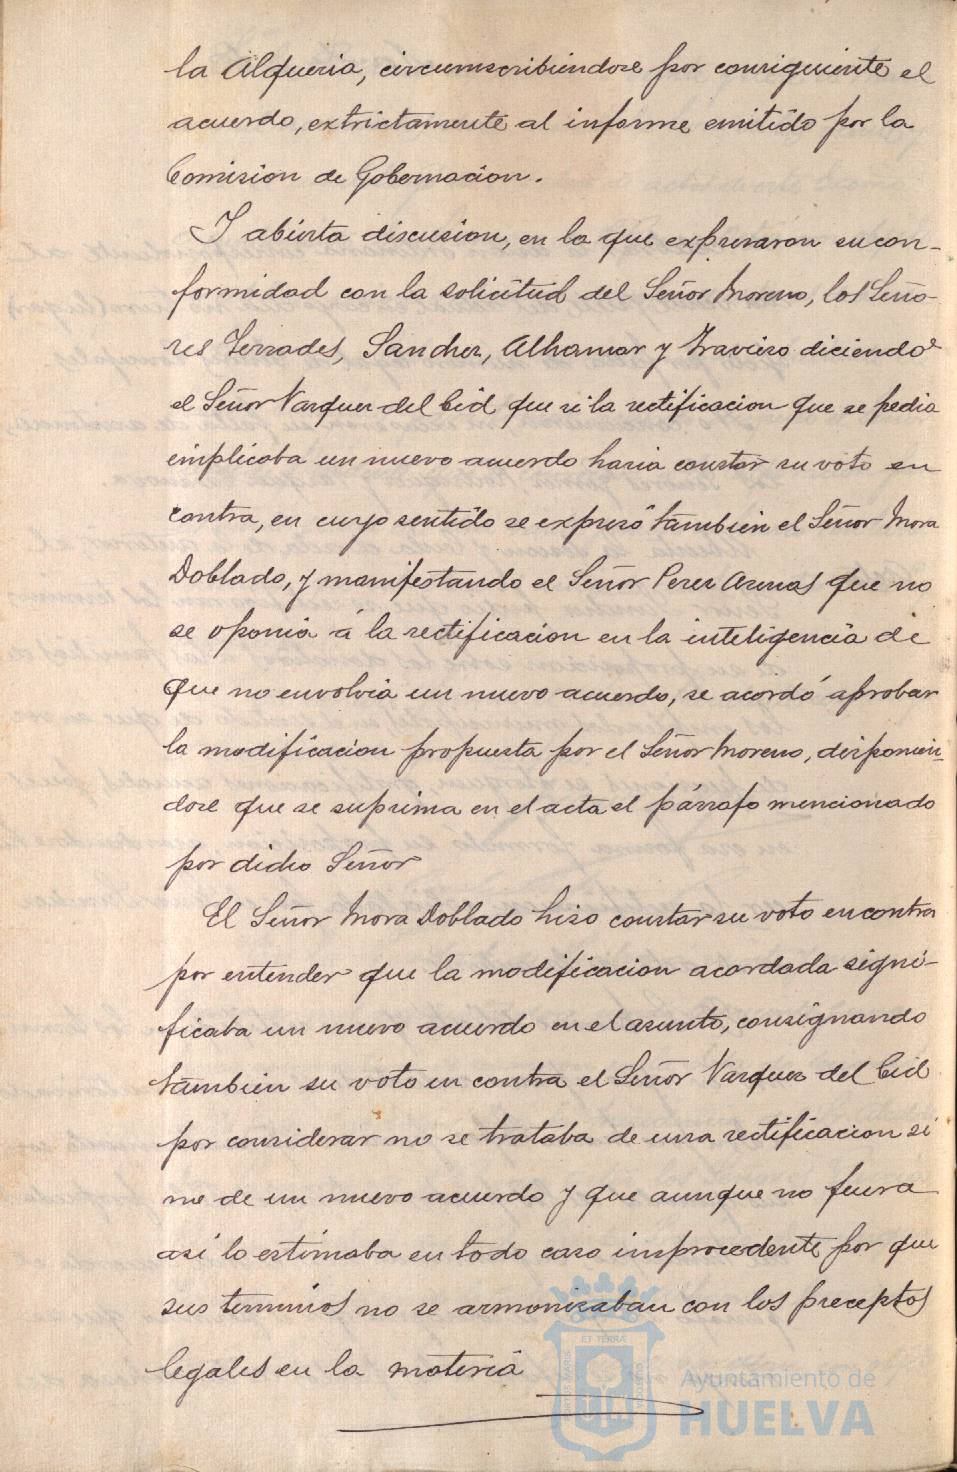 la Alqueria, circumscribiendose por consiguiente el
acuerdo, extrictamente al informe emitido por la
Comision de Gobernacion.
Y abierta discusion, en la que expresaron su con-
formidad con la solicitud del Señor Moreno, los Seño-
res Terrades, Sanchez, Alhamar y Travieso diciendo
el Señor Vazquez del Cid que si la rectificacion que se pedia
implicaba un nuevo acuerdo haria constar su voto en
contra, en cuyo sentido se expresó tambien el Señor Mora
Doblado, y manifestando el Señor Perez Arenas que no
se oponia á la rectificacion en la inteligencia de
que no envolvia un nuevo acuerdo, se acordó aprobar
la modificacion propuesta por el Señor Moreno, disponien-
dose que se suprima en el acta el párrafo mencionado
por dicho Señor
El Señor Mora Doblado hiso constar su voto en contra
por entender que la modificacion acordada signi-
ficaba un nuevo acuerdo en el asunto, consignando
tambien su voto en contra el Señor Vazquez del Cid
por considerar no se trataba de una rectificacion si
no de un nuevo acuerdo y que aunque no fuera
asi lo estimaba en todo caso improcedente por que
sus terminos no se armonizaban con los preceptos
legales en la materia
ET TERRÆ
Ayuntamiento de
HUELVA